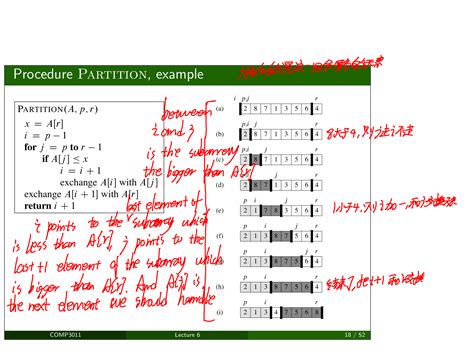 Procedure PARTITION, example
PARTITION(A, p, r)
x = A[r]
i = p − 1
for j = p to r − 1
if A[j] ≤ x
i = i + 1
exchange A[i] with A[j]
exchange A[i + 1] with A[r]
return i + 1
between
i and j
is the subarray
the bigger than A[r]
last element of
i points to the subarray which
is less than A[r], j points to the
last+1 element of the subarray which
is bigger than A[r]. And A[j] is
the next element we should handle
i p,j r
(a) 2 8 7 1 3 5 6 4
p,i j r
(b) 2 8 7 1 3 5 6 4
8大于4,则i不变
p,i j r
(c) 2 8 7 1 3 5 6 4
p,i j r
(d) 2 8 7 1 3 5 6 4
p i j r
(e) 2 1 7 8 3 5 6 4
1小于4,则i加一,
p i j r
(f) 2 1 3 8 7 5 6 4
p i j r
(g) 2 1 3 8 7 5 6 4
p i r
(h) 2 1 3 8 7 5 6 4
结束了,把i+1和r交换
p i r
(i) 2 1 3 4 7 5 6 8
COMP3011 Lecture 6 18 / 52